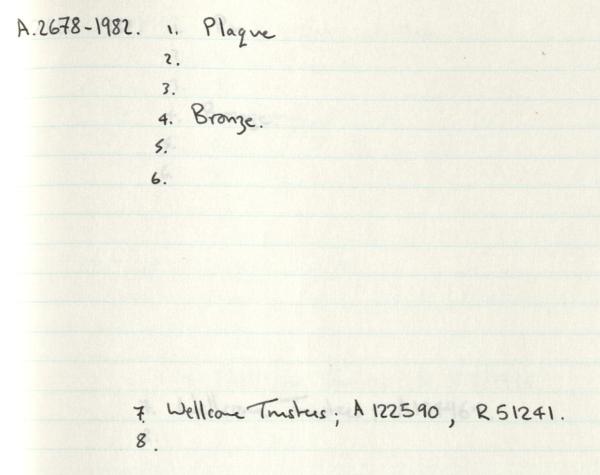 A.2678-1982. 1. Plaque
2.
3.
4. Bronze.
5.
6.
7. Wellcome Trustees; A 122590, R 51241.
8.